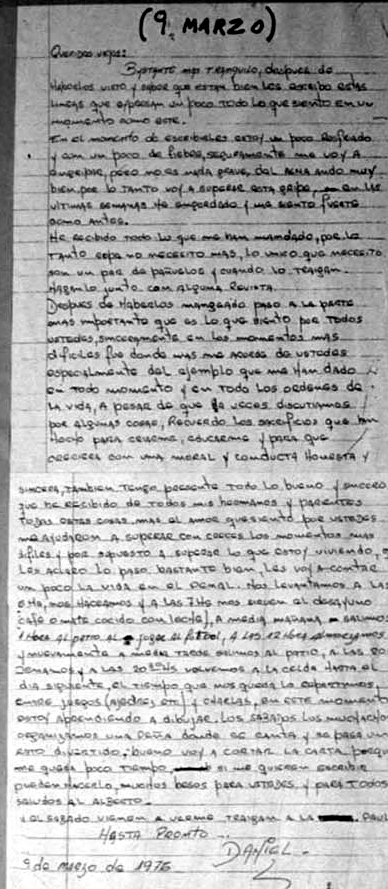 (9. MARZO)
Queridos viejos:
Bastante mas tranquilo, despues de
Haberlos visto y saber que estan bien les escribo estas
lineas que expresan un poco todo lo que siento en un
momento como este.
En el momento de escribirles estoy un poco resfriado
y con un poco de fiebre, seguramente me voy a
engripar, pero no es nada grave, del asma ando muy
bien por lo tanto voy a superar esta gripe, en las
ultimas semanas he engordado y me siento fuerte
como antes.
He recibido todo lo que me han mandado, por lo
tanto ropa no necesito mas, lo unico que necesito
son un par de pañuelos y cuando lo traigan.
Haganlo junto con alguna revista.
Despues de Haberlos mangueado paso a la parte
mas importante que es lo que siento por todos
ustedes, sinceramente en los momentos mas
dificiles fue donde mas me acorde de ustedes
especialmente del ejemplo que me han dado
en todo momento y en todo los ordenes de
la vida, a pesar de que a veces discutiamos
por algunas cosas, Recuerdo los sacrificios que han
Hecho para criarme, educarme y para que
creciera con una moral y conducta Honesta y
sincera, tambien tengo presente todo lo bueno y sincero
que he recibido de todos mis hermanos y parientes
todas estas cosas mas el amor que siento por ustedes
me ayudaron a superar con creces los momentos mas
difiles y por supuesto a superar lo que estoy viviendo,
les aclaro lo paso bastante bien, les voy a contar
un poco la vida en el penal. Nos levantamos a las
6 Hs, nos Hacemos y a las 7 Hs nos sirven el desayuno
(cafe o mate cocido con leche), a media mañana salimos
1 Hora al patio al jugar al futbol, a las 12 Horas almorzamos
y nuevamente a media tarde salimos al patio, a las 20
cenamos y a las 20 30 Hs volvemos a la celda Hasta el
dia siguiente, el tiempo que nos queda lo repartimos
entre juegos (ajedrez, etc) y charlas, en este momento
estoy aprendiendo a dibujar. Los sabados los muchachos
organizamos una peña donde se canta y se pasa un
rato divertido, bueno voy a cortar la carta porque
me queda poco tiempo, si me quieren escribir
pueden hacerlo, muchos besos para ustedes y para todos
saludos al Alberto.
el sabado vienen a verme traigan a la
Hasta pronto ...
DANIEL.
9 de marzo de 1976